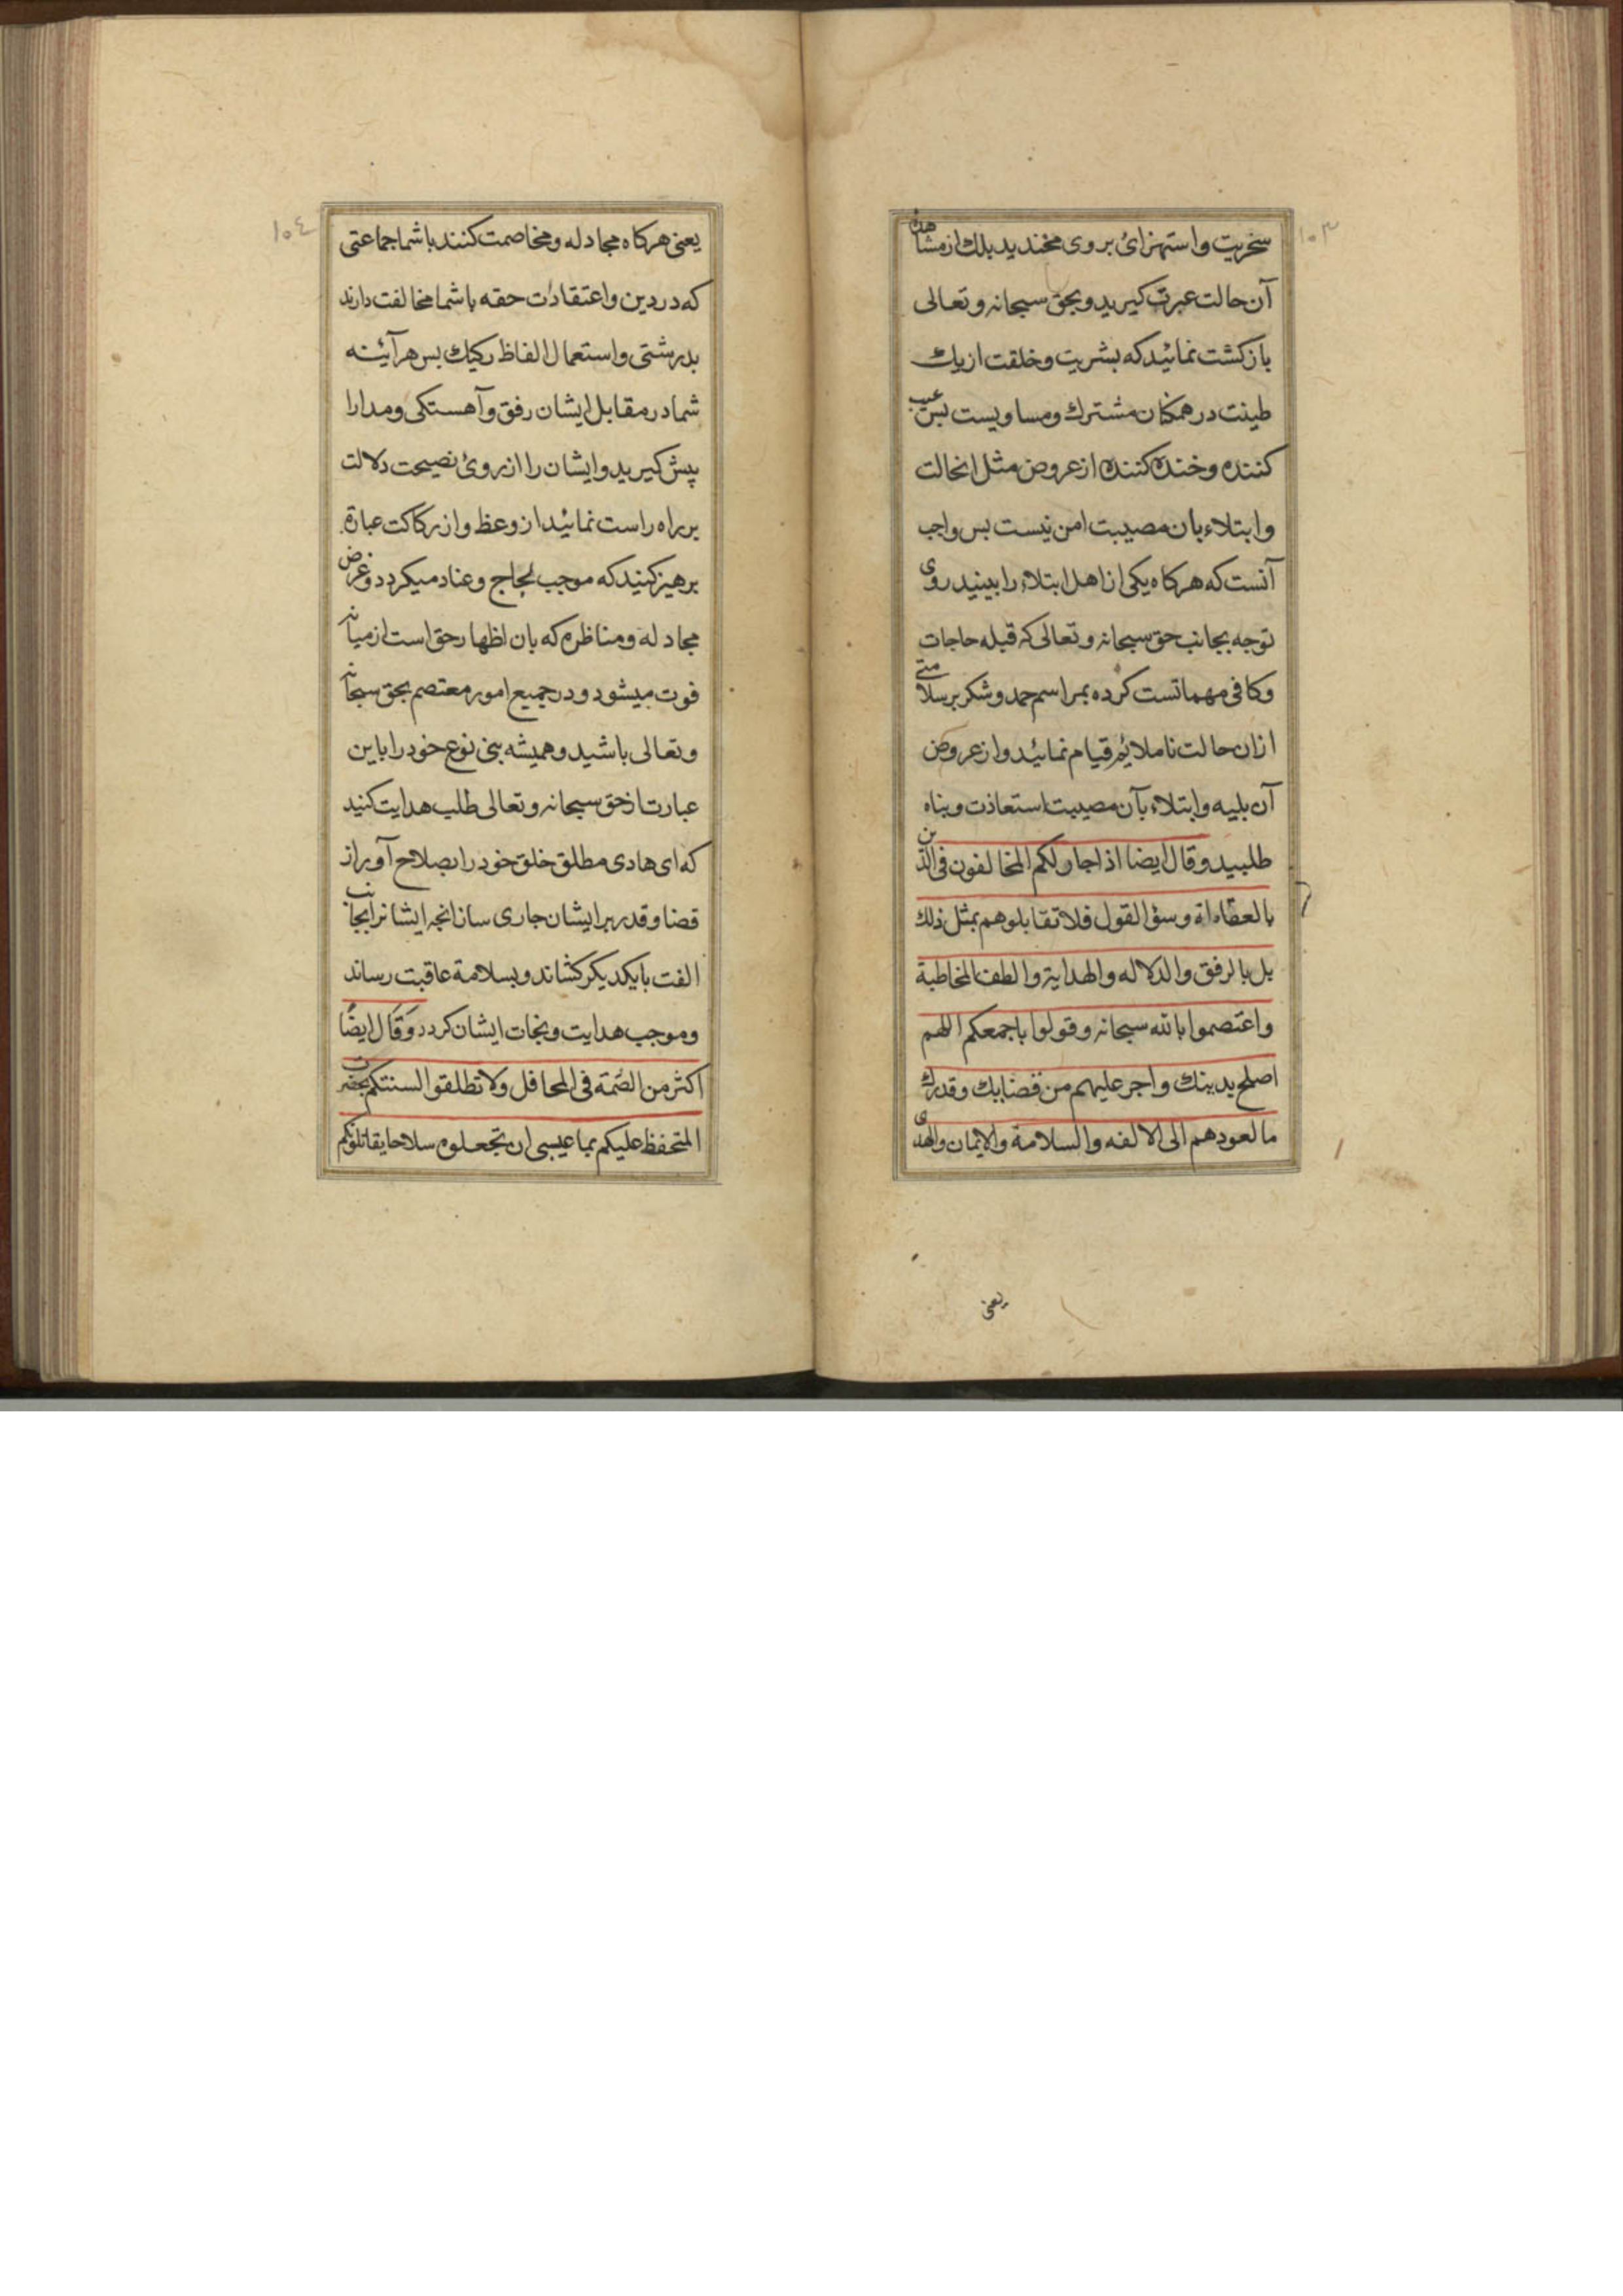 ۱۰۳
سخریت و استهزائ بر وی مخندید بلك از مشاهدهٔ
آن حالت عبرت کیرید و بحق سبحانه و تعالی
بازکشت نمائید که بشریت و خلقت از یك
طینت در همکنان مشترك و مساویست بس عیب
کننده و خنده کننده از عروض مثل انحالت
و ابتلاء بان مصیبت امن نیست بس واجب
آنست که هرکاه یکی از اهل ابتلاء را ببینید روی
توجه بجانب حق سبحانه و تعالی که قبله حاجات
و کافی مهماتست کرده بمراسم حمد و شکر بر سلامتی
ازان حالت ناملائم قیام نمائید و از عروض
آن بلیه و ابتلاء بآن مصیبت استعاذت و بناه
طلبید و قال ایضا اذا جادلکم المخالفون فی الدین
بالعظاه اة و سؤ القول فلا تقابلوهم بمثل ذلك
بل بالرفق والدلاله والهدایة والطف المخاطبة
واعتصموا بالله سبحانه وقولوا باجمعکم اللهم
اصلح بدینك واجر علیهم من قضایك وقدرك
مالعودهم الی الالفه والسلامة والایمان والهدی
یعنی
۱۰٤
یعنی هرکاه مجادله و مخاصمت کنند با شما جماعتی
که در دین و اعتقادات حقه با شما مخالفت دارند
بدرشتی و استعمال الفاظ رکیك بس هرآئینه
شما در مقابل ایشان رفق و آهستکی و مدارا
پیش کیرید و ایشان را از روئ نصیحت دلالت
بر راه راست نمائید از وعظ و از رکاکت عبارة
برهیز کنید که موجب لجاج و عناد میکردد و غرض
مجادله و مناظره که بان اظهار حق است از میانه
فوت میشود و در جمیع امور معتصم بحق سبحانه
و تعالی باشید و همیشه بنی نوع خود را باین
عبارت از حق سبحانه و تعالی طلب هدایت کنید
که ای هادی مطلق خلق خود را بصلاح آور از
قضا و قدر بر ایشان جاری ساز انجه ایشانرا بجانب
الفت با یکدیکر کشاند و بسلامة عاقبت رساند
و موجب هدایت و نجات ایشان کردد وقال ایضًا
اکثر من الصمته فی المحافل ولا تطلقوا السنتکم بحضرت
المتحفظ علیکم بما عیسی ان تجعلوه سلاحا یقاتلونکم